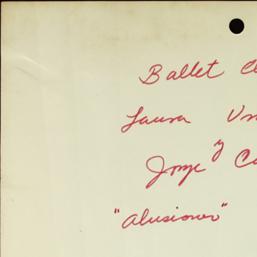 Ballet
Laura
y
Jorge
"Alusiones"